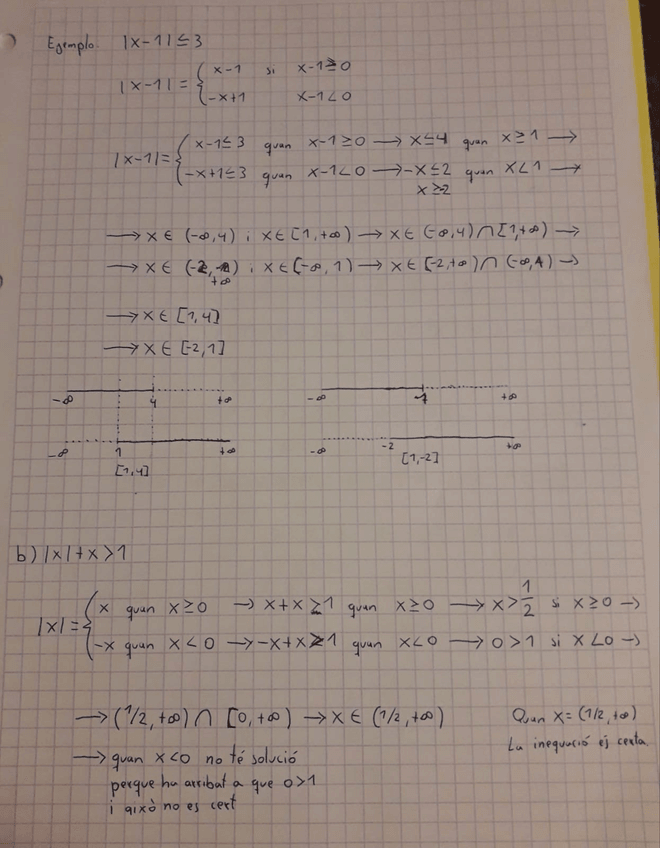 Egemplo. |x-1| ≤ 3
|x-1| = { x-1 si x-1≥0
-x+1 x-1<0
|x-1| = { x-1≤3 quan x-1≥0 → x≤4 quan x≥1 →
-x+1≤3 quan x-1<0 → -x≤2 quan x<1 →
x≥-2
→ x ∈ (-∞,4) i x∈[1,+∞) → x∈(-∞,4)∩[1,+∞) →
→ x ∈ (-2, +∞) i x∈(-∞,1) → x∈[-2,+∞)∩(-∞,1) →
→ x ∈ [1,4]
→ x ∈ [-2,1]
-∞ 4 +∞ -∞ 1 +∞
-∞ 1 +∞ -∞ -2 +∞
[1,4] [1,-2]
b) |x|+x>1
|x| = { x quan x≥0 → x+x≥1 quan x≥0 → x>1/2 si x≥0 →
-x quan x<0 → -x+x≥1 quan x<0 → 0>1 si x<0 →
→ (1/2,+∞) ∩ [0,+∞) → x∈(1/2,+∞) Quan x=(1/2,+∞)
La inequació es certa.
→ quan x<0 no té solució
perque ha arribat a que 0>1
i això no es cert